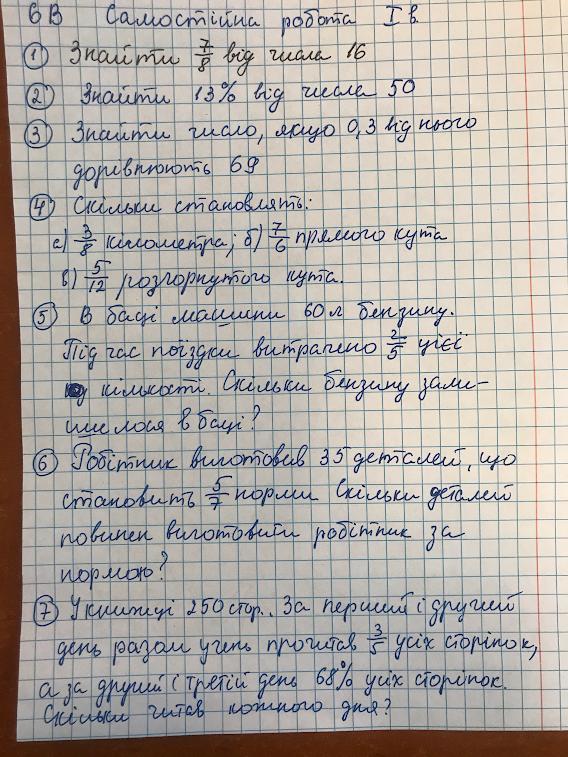 6В Самостійна робота I в.
① Знайти 7/8 від числа 16
② Знайти 13% від числа 50
③ Знайти число, якщо 0,3 від нього
дорівнюють 69
④ Скільки становлять:
а) 3/8 кілометра; б) 7/6 прямого кута
в) 5/12 розгорнутого кута.
⑤ В баці машини 60 л бензину.
Під час поїздки витрачено 2/5 цієї
кількості. Скільки бензину зали-
шилося в баці?
⑥ Робітник виготовив 35 деталей, що
становить 5/7 норми Скільки деталей
повинен виготовити робітник за
нормою?
⑦ У книжці 250 стор.. За перший і другий
день разом учень прочитав 3/5 усіх сторінок,
а за другий і третій день 68% усіх сторінок.
Скільки читав кожного дня?